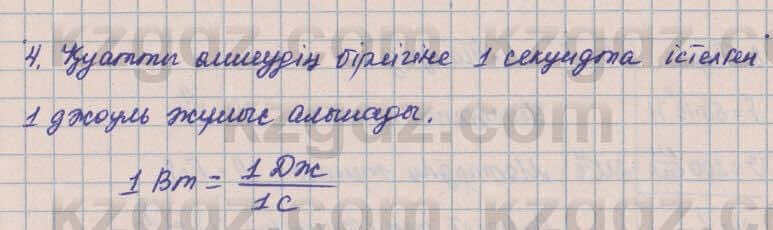 4. Қуатты өлшеудің бірлігіне 1 секундта істелген
1 джоуль жұмыс алынады.
1 Вт = 1 Дж / 1 с
kzgdz.com